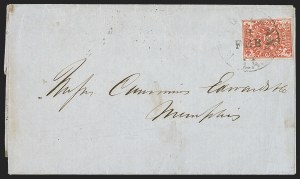 Messrs Cummins Edwards & Co
Memphis